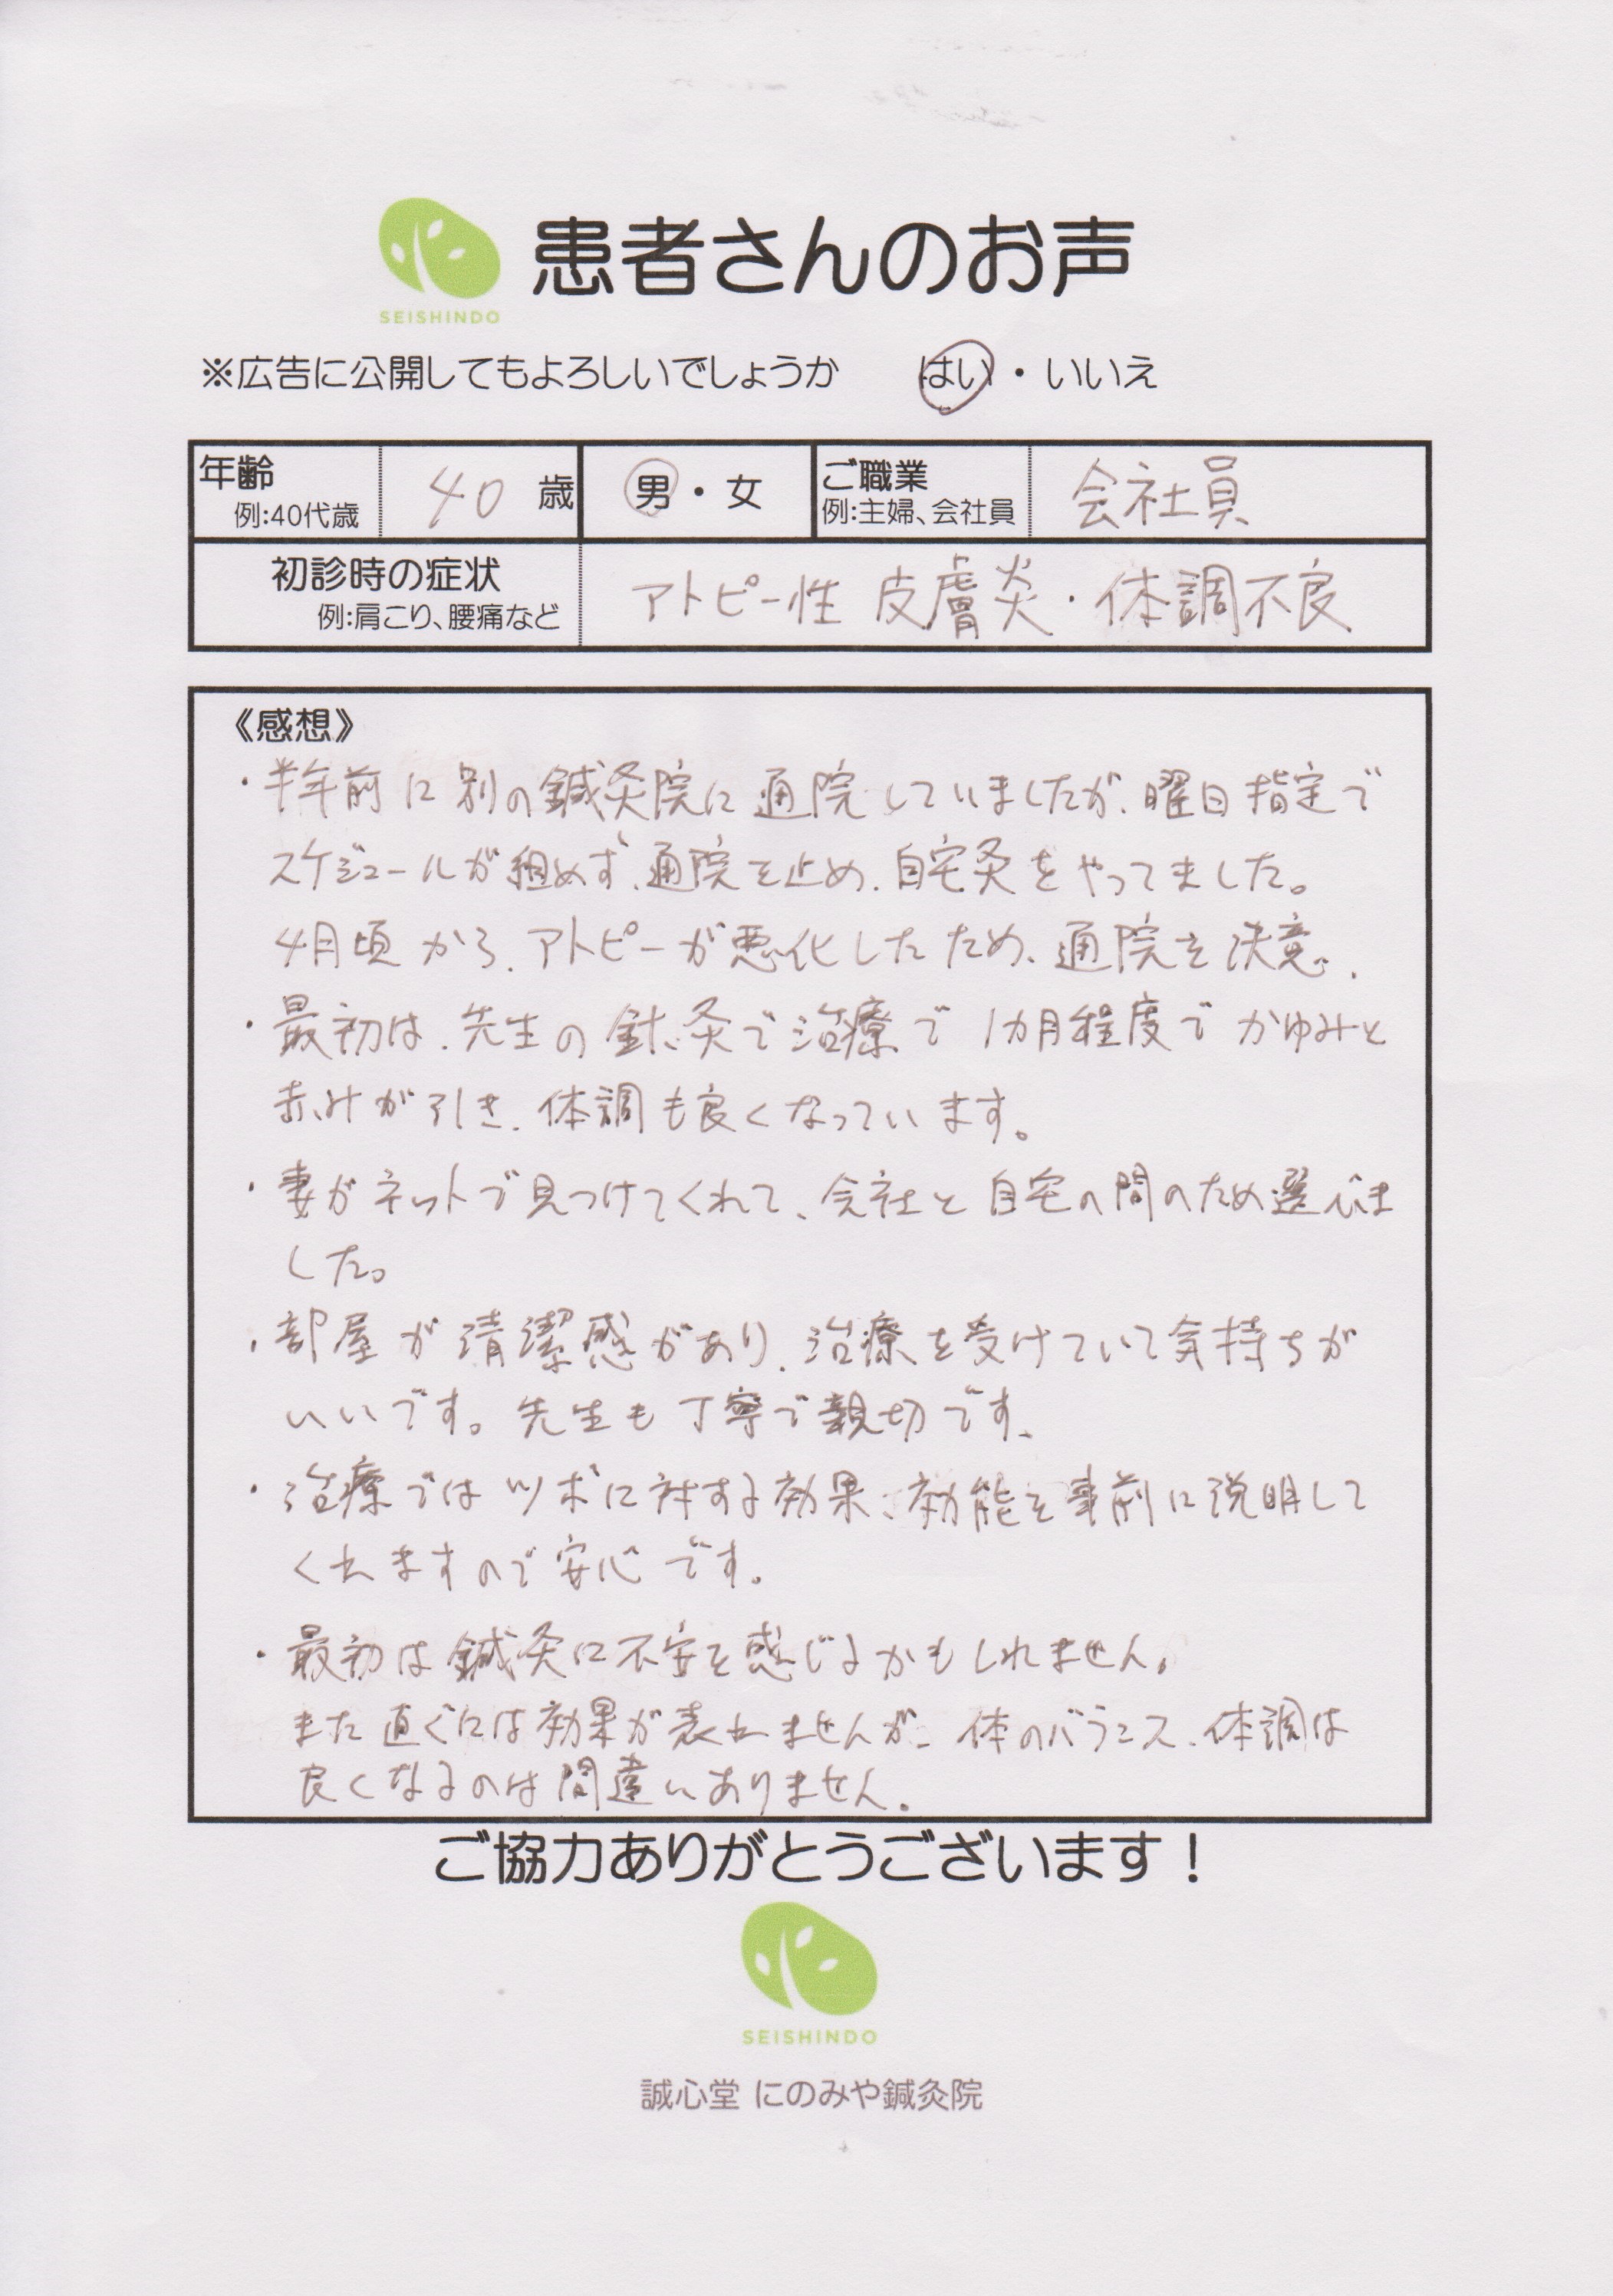 患者さんのお声
SEISHINDO
※広告に公開してもよろしいでしょうか　はい・いいえ
年齢 例:40代歳 40 歳 男・女 ご職業 例:主婦、会社員 会社員
初診時の症状 例:肩こり、腰痛など アトピー性皮膚炎・体調不良
《感想》
・半年前に別の鍼灸院に通院していましたが、曜日指定で
スケジュールが組めず、通院を止め、自宅灸をやってました。
4月頃から、アトピーが悪化したため、通院を決意。
・最初は、先生の針、灸で治療で1カ月程度でかゆみと
赤みが引き、体調も良くなっています。
・妻がネットで見つけてくれて、会社と自宅の間のため選びま
した。
・部屋が清潔感があり、治療を受けていて気持ちが
いいです。先生も丁寧で親切です。
・治療ではツボに対する効果、効能を事前に説明して
くれますので安心です。
・最初は鍼灸に不安を感じるかもしれません。
また直ぐには効果が表れませんが、体のバランス、体調は
良くなるのは間違いありません。
ご協力ありがとうございます！
SEISHINDO
誠心堂 にのみや鍼灸院